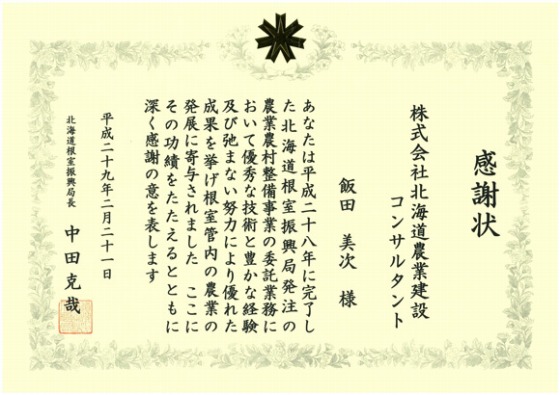 感謝状
株式会社北海道農業建設
コンサルタント
飯田 美次 様
あなたは平成二十八年に完了し
た北海道根室振興局発注の
農業農村整備事業の委託業務に
おいて優秀な技術と豊かな経験
及び弛まない努力により優れた
成果を挙げ根室管内の農業の
発展に寄与されました ここに
その功績をたたえるとともに
深く感謝の意を表します
平成二十九年二月二十一日
北海道根室振興局長 中田克哉